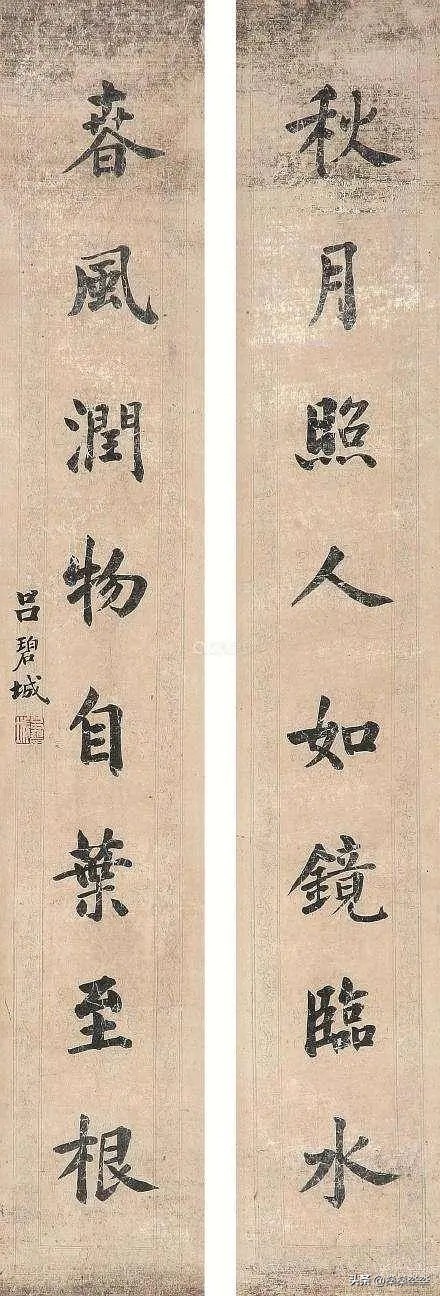 秋月照人如鏡臨水
春風潤物自葉至根
呂碧城